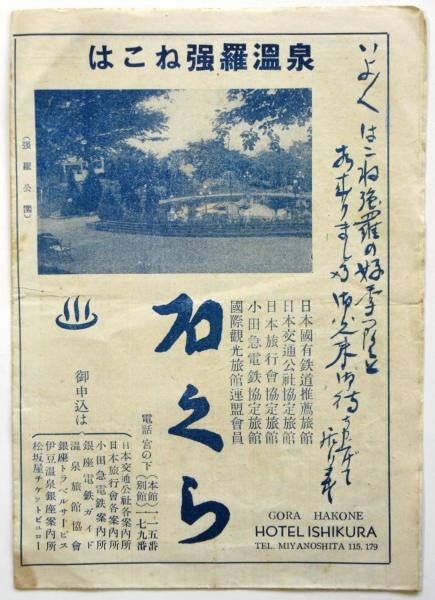 はこね强羅溫泉
いよ〱はこね強羅の好季節と
相なりました御光来御待
(强羅公園)
日本國有鉄道推薦旅館
日本交通公社協定旅館
日本旅行會協定旅館
小田急電鉄協定旅館
國際觀光旅館連盟會員
石くら
電話 宮の下
(本館)一一五番
(別館)一七九番
御申込は
日本交通公社各案内所
日本旅行會各案内所
小田急電鉄案内所
銀座電鉄ガイド
溫泉旅館協會
銀座トラベルサービス
伊豆溫泉銀座案内所
松坂屋チケットビュロー
GORA HAKONE
HOTEL ISHIKURA
TEL. MIYANOSHITA 115, 179